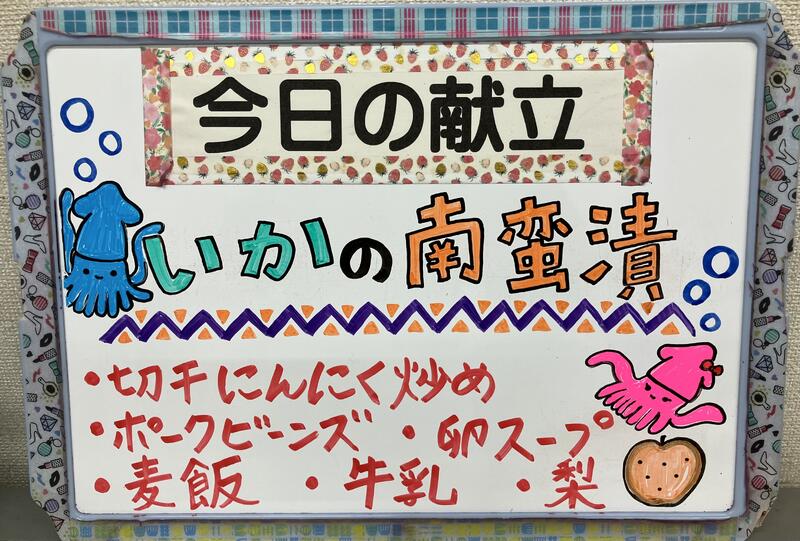 今日の献立
いかの南蛮漬
・切干にんにく炒め
・ポークビーンズ ・卵スープ
・麦飯 ・牛乳 ・梨